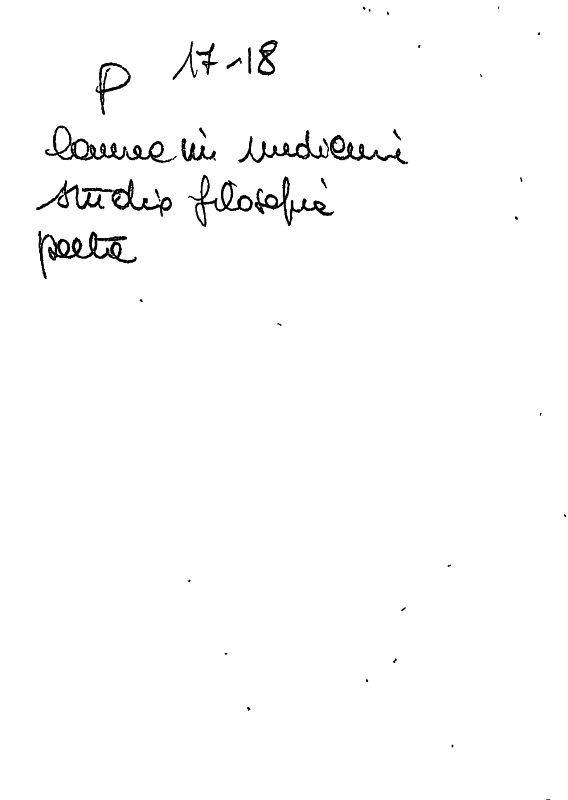 P 17-18
laurea in medicina
studia filosofia
poeta